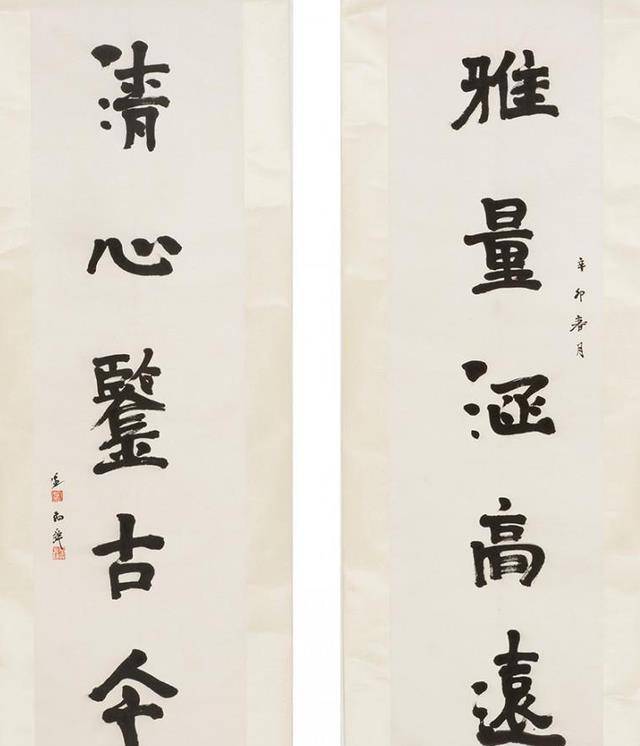 雅量涵高遠
辛卯春月
清心鑒古今